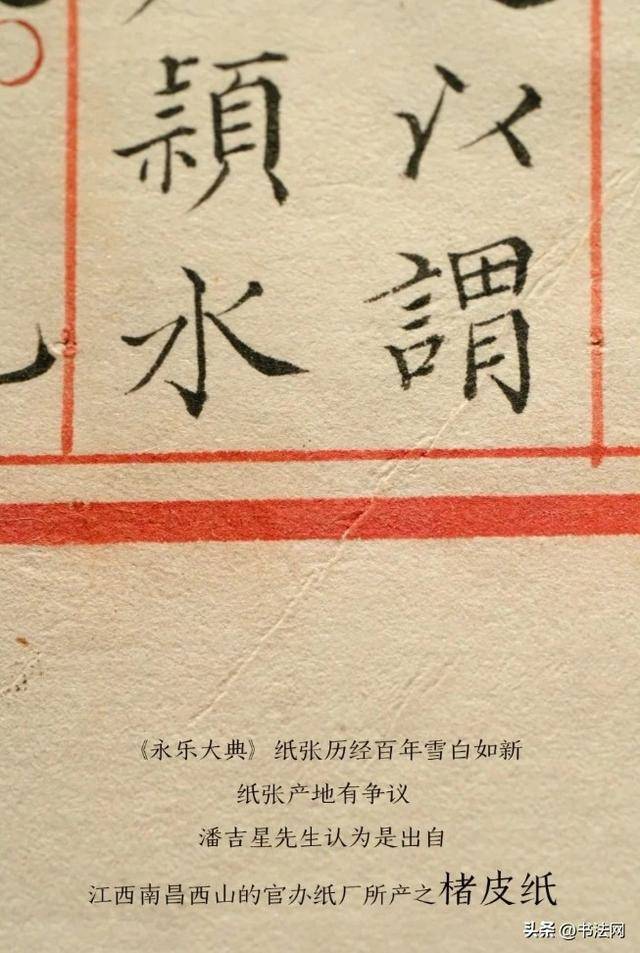 以謂
頴水
《永乐大典》纸张历经百年雪白如新
纸张产地有争议
潘吉星先生认为是出自
江西南昌西山的官办纸厂所产之楮皮纸
头条 @书法网